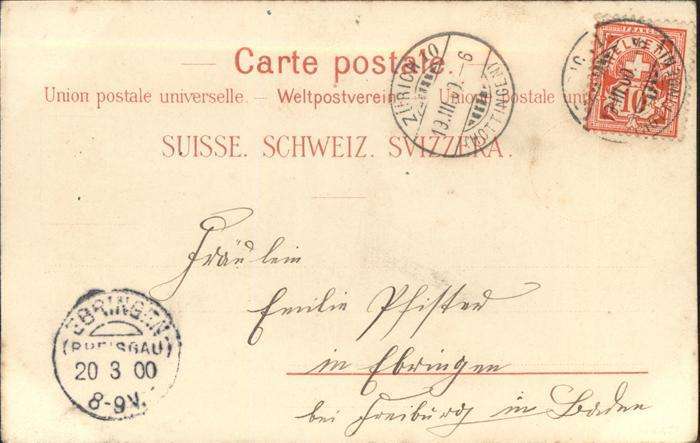 Carte postale.
Union postale universelle. – Weltpostverein. – Union postale
SUISSE. SCHWEIZ. SVIZZERA.
ZÜRICH 10
(OTTINGEN)
19.III.00.–9
FRANCO
HELVETIA
10
Fräulein
Emilie Pfister
in Ebringen
bei Freiburg in Baden
EBRINGEN
(BREISGAU)
20 3 00
8-9V.